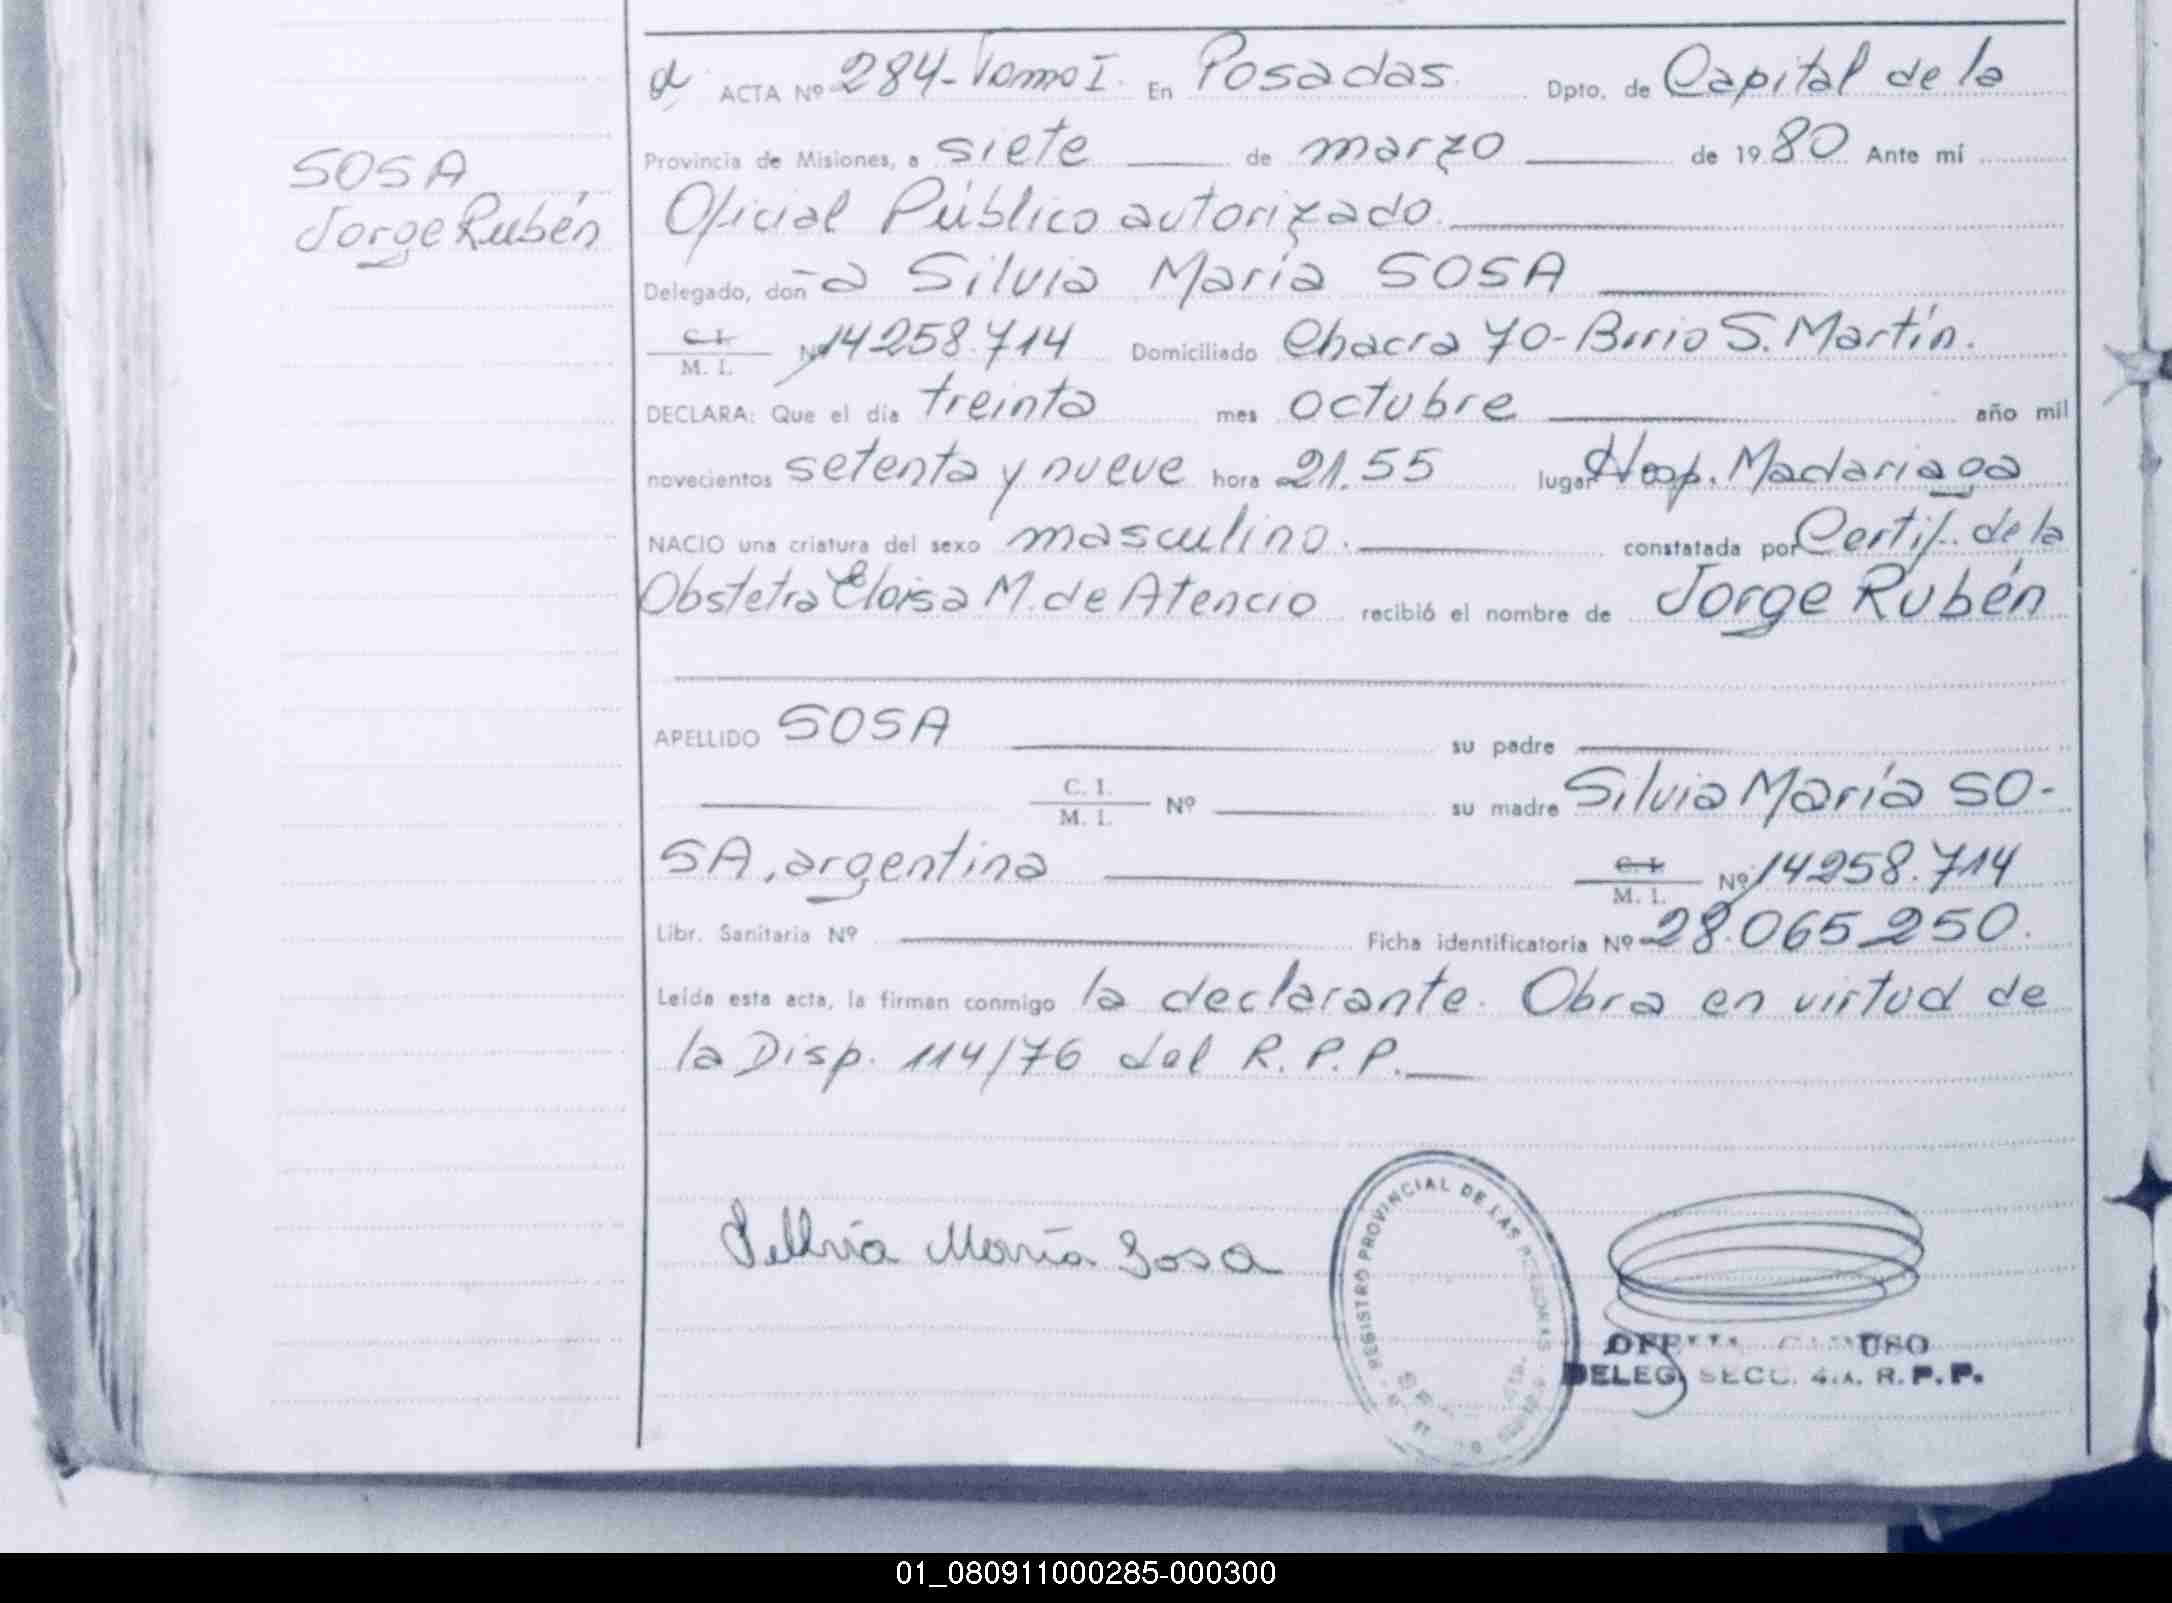 SOSA
Jorge Rubén
ACTA Nº 284-Tomo I. En Posadas Dpto. de Capital de la
Provincia de Misiones, a siete de marzo de 1980 Ante mí
Oficial Público autorizado.
Delegado, doña Silvia María SOSA
C. I. / M. I. Nº 14258.714 Domiciliado Chacra 70- Barrio S. Martín.
DECLARA: Que el día treinta mes octubre año mil
novecientos setenta y nueve hora 21.55 lugar Hosp. Madariaga
NACIO una criatura del sexo masculino. constatada por Certif. de la
Obstetra Eloisa M. de Atencio recibió el nombre de Jorge Rubén
APELLIDO SOSA su padre
C. I. / M. I. Nº su madre Silvia María SO-
SA, argentina C. I. / M. I. Nº 14258.714
Libr. Sanitaria Nº Ficha identificatoria Nº 28.065250.
Leída esta acta, la firman conmigo la declarante. Obra en virtud de
la Disp. 114/76 del R. P. P.
Sillvia María Sosa
REGISTRO PROVINCIAL DE LAS PERSONAS
DELEG. SECC. 4.a. R. P. P.
01_080911000285-000300